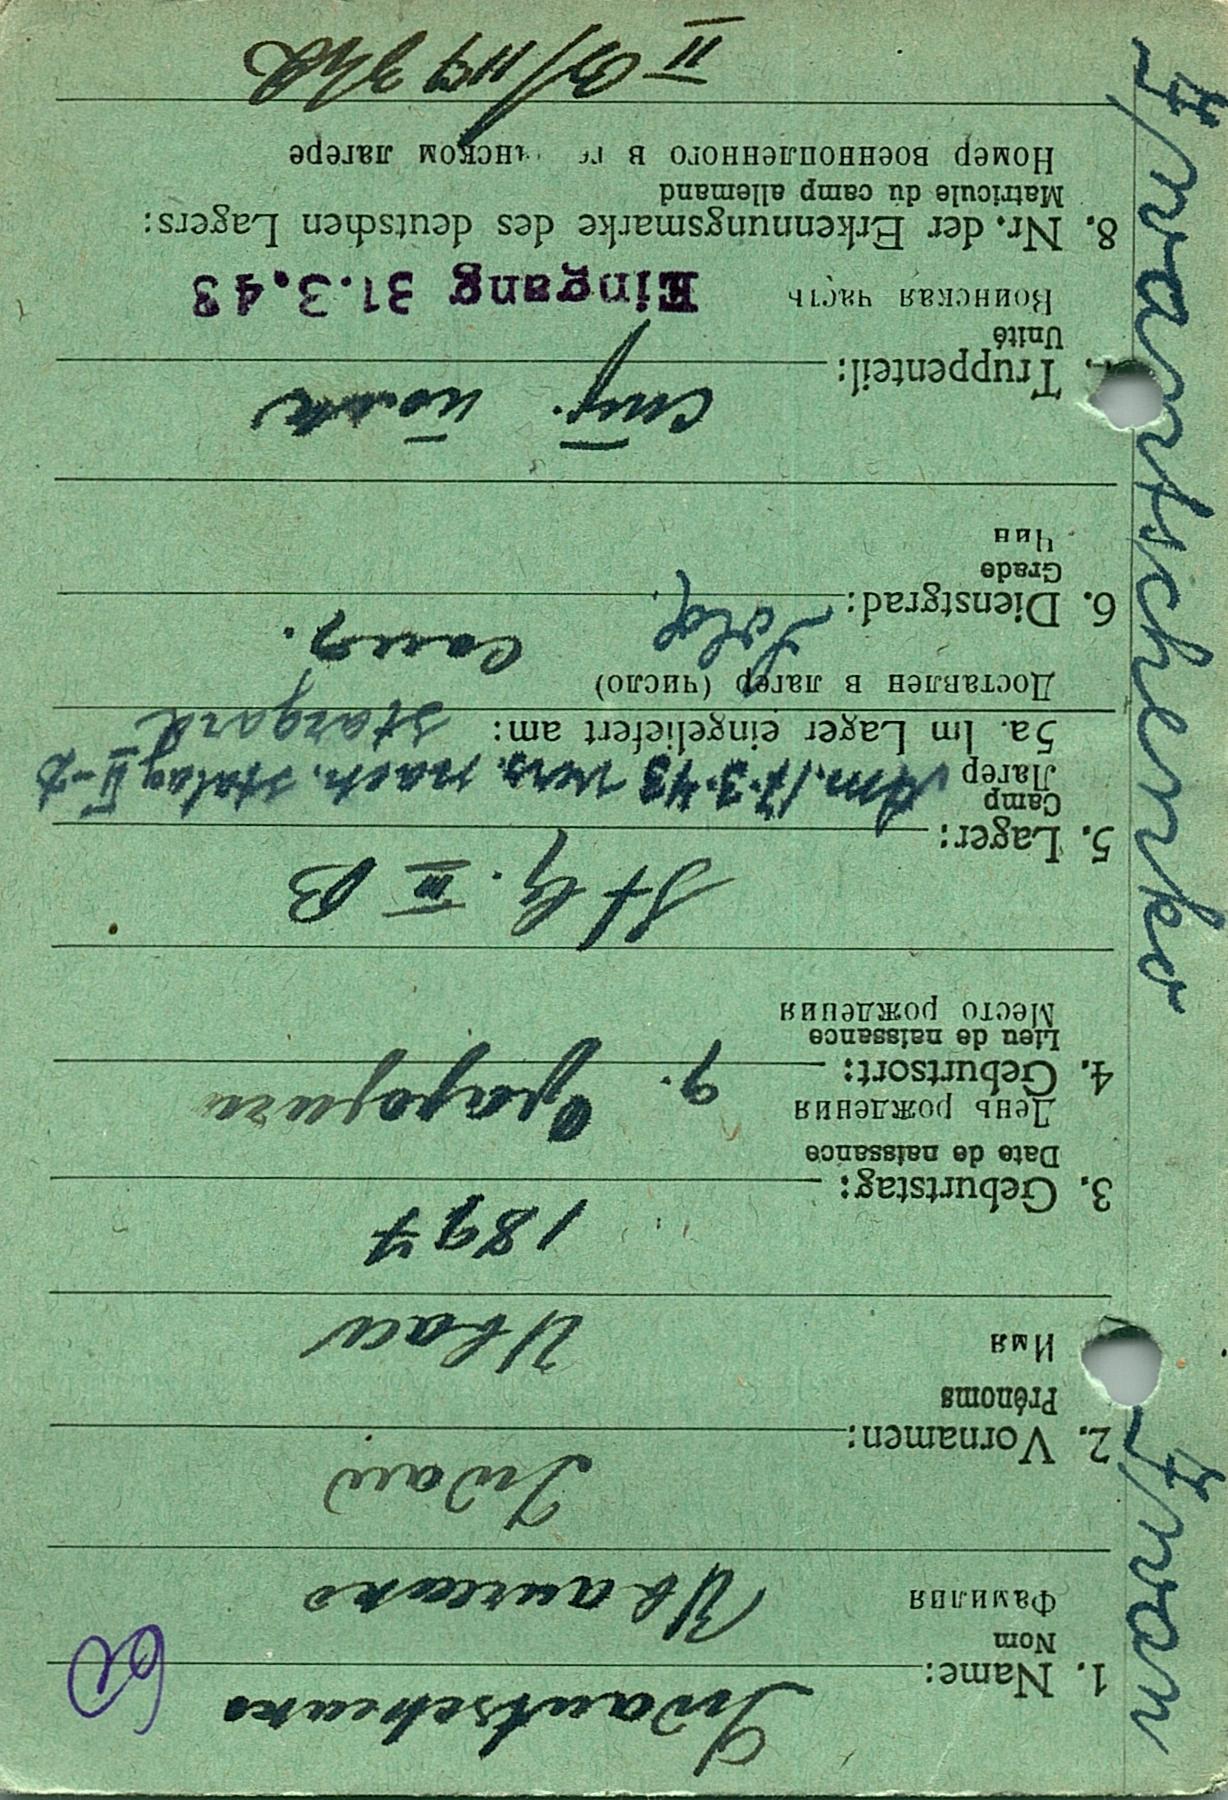 Iwantschenko
1. Name:
Nom
Фамилия
Иванченко
Iwan
2. Vornamen:
Prénoms
Имя
Иван
1897
3. Geburtstag:
Date de naissance
День рождения
4. Geburtsort:
Lieu de naissance
Место рождения
Stlg. III B
5. Lager:
Camp
Лагер
Am. 17.3.43 vers. nach. Stalag II-
Stargard
5a. Im Lager eingeliefert am:
Доставлен в лагер (число)
Sold.
6. Dienstgrad:
Grade
Чин
7. Truppenteil:
Unité
Воинская часть
Eingang 31.3.43
8. Nr. der Erkennungsmarke des deutschen Lagers:
Matricule du camp allemand
Номер военнопленного в нском лагере
Iwantschenko
Iwan